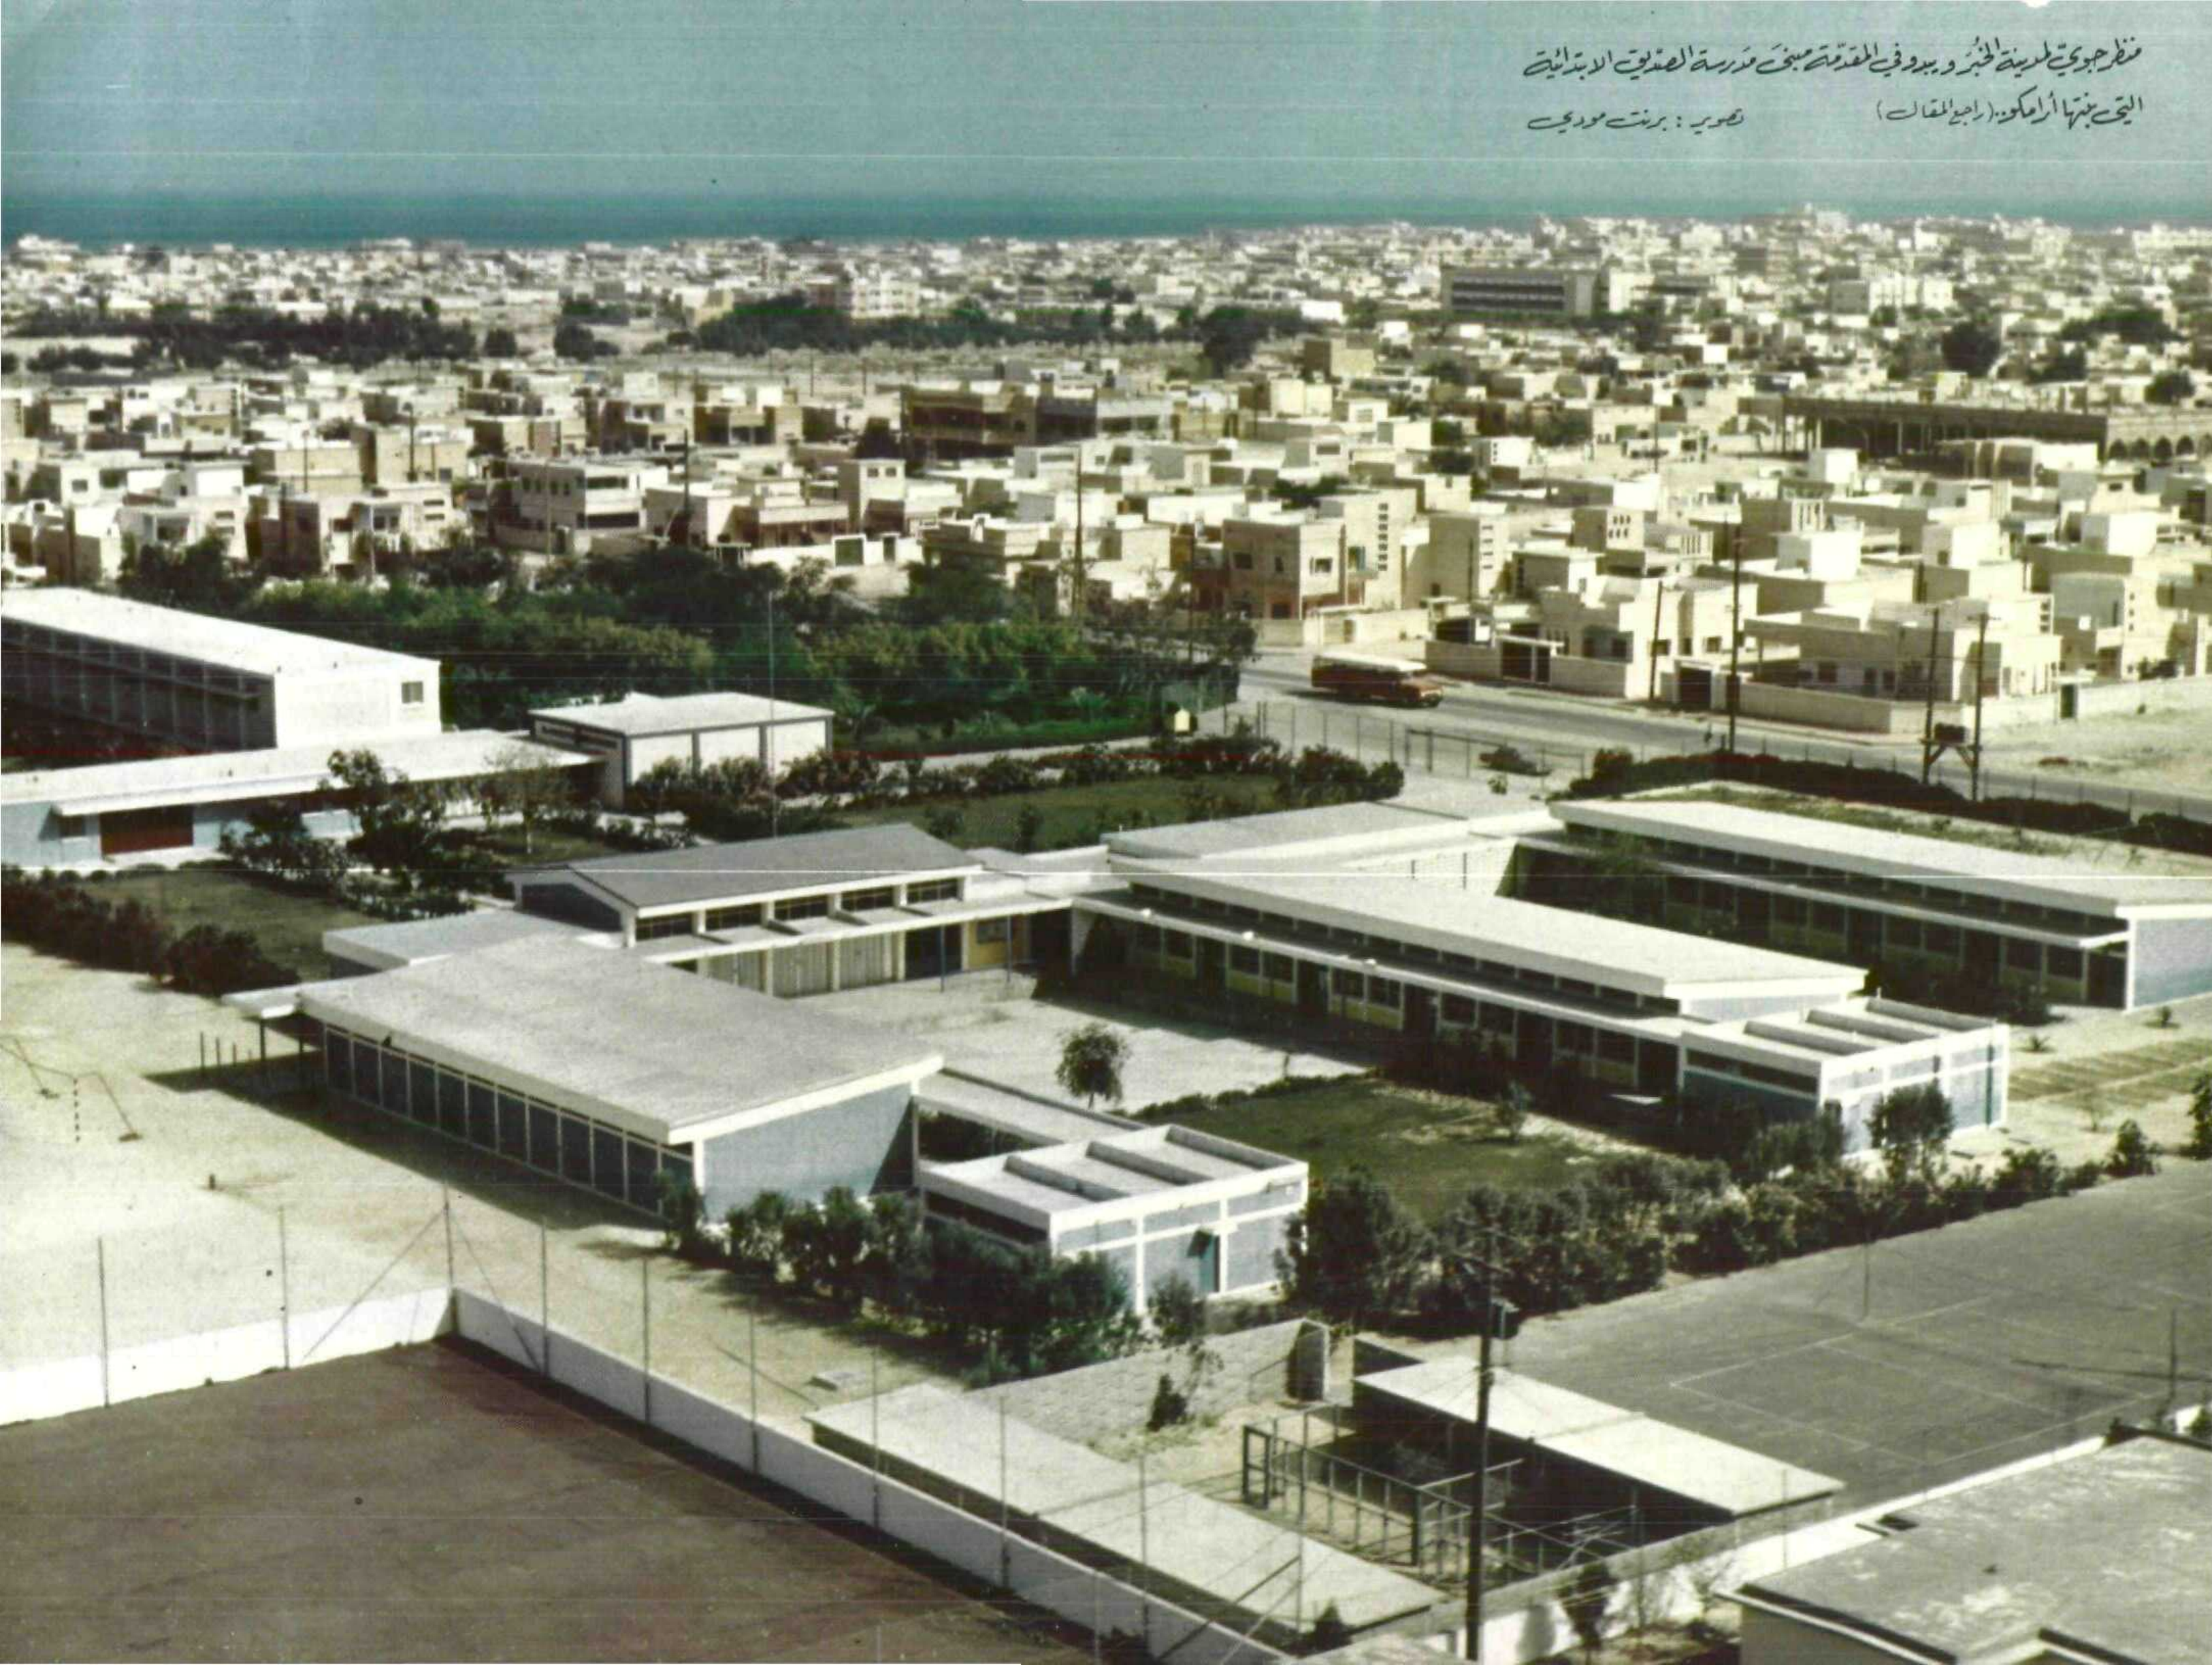 منظر جوي لمدينة الخُبَر ويبدو في المقدّمة مبنى مَدرسة الصدّيق الابتدائية
التي بنتها أرامكو.. (راجع المقال) تصوير : برنت مودي